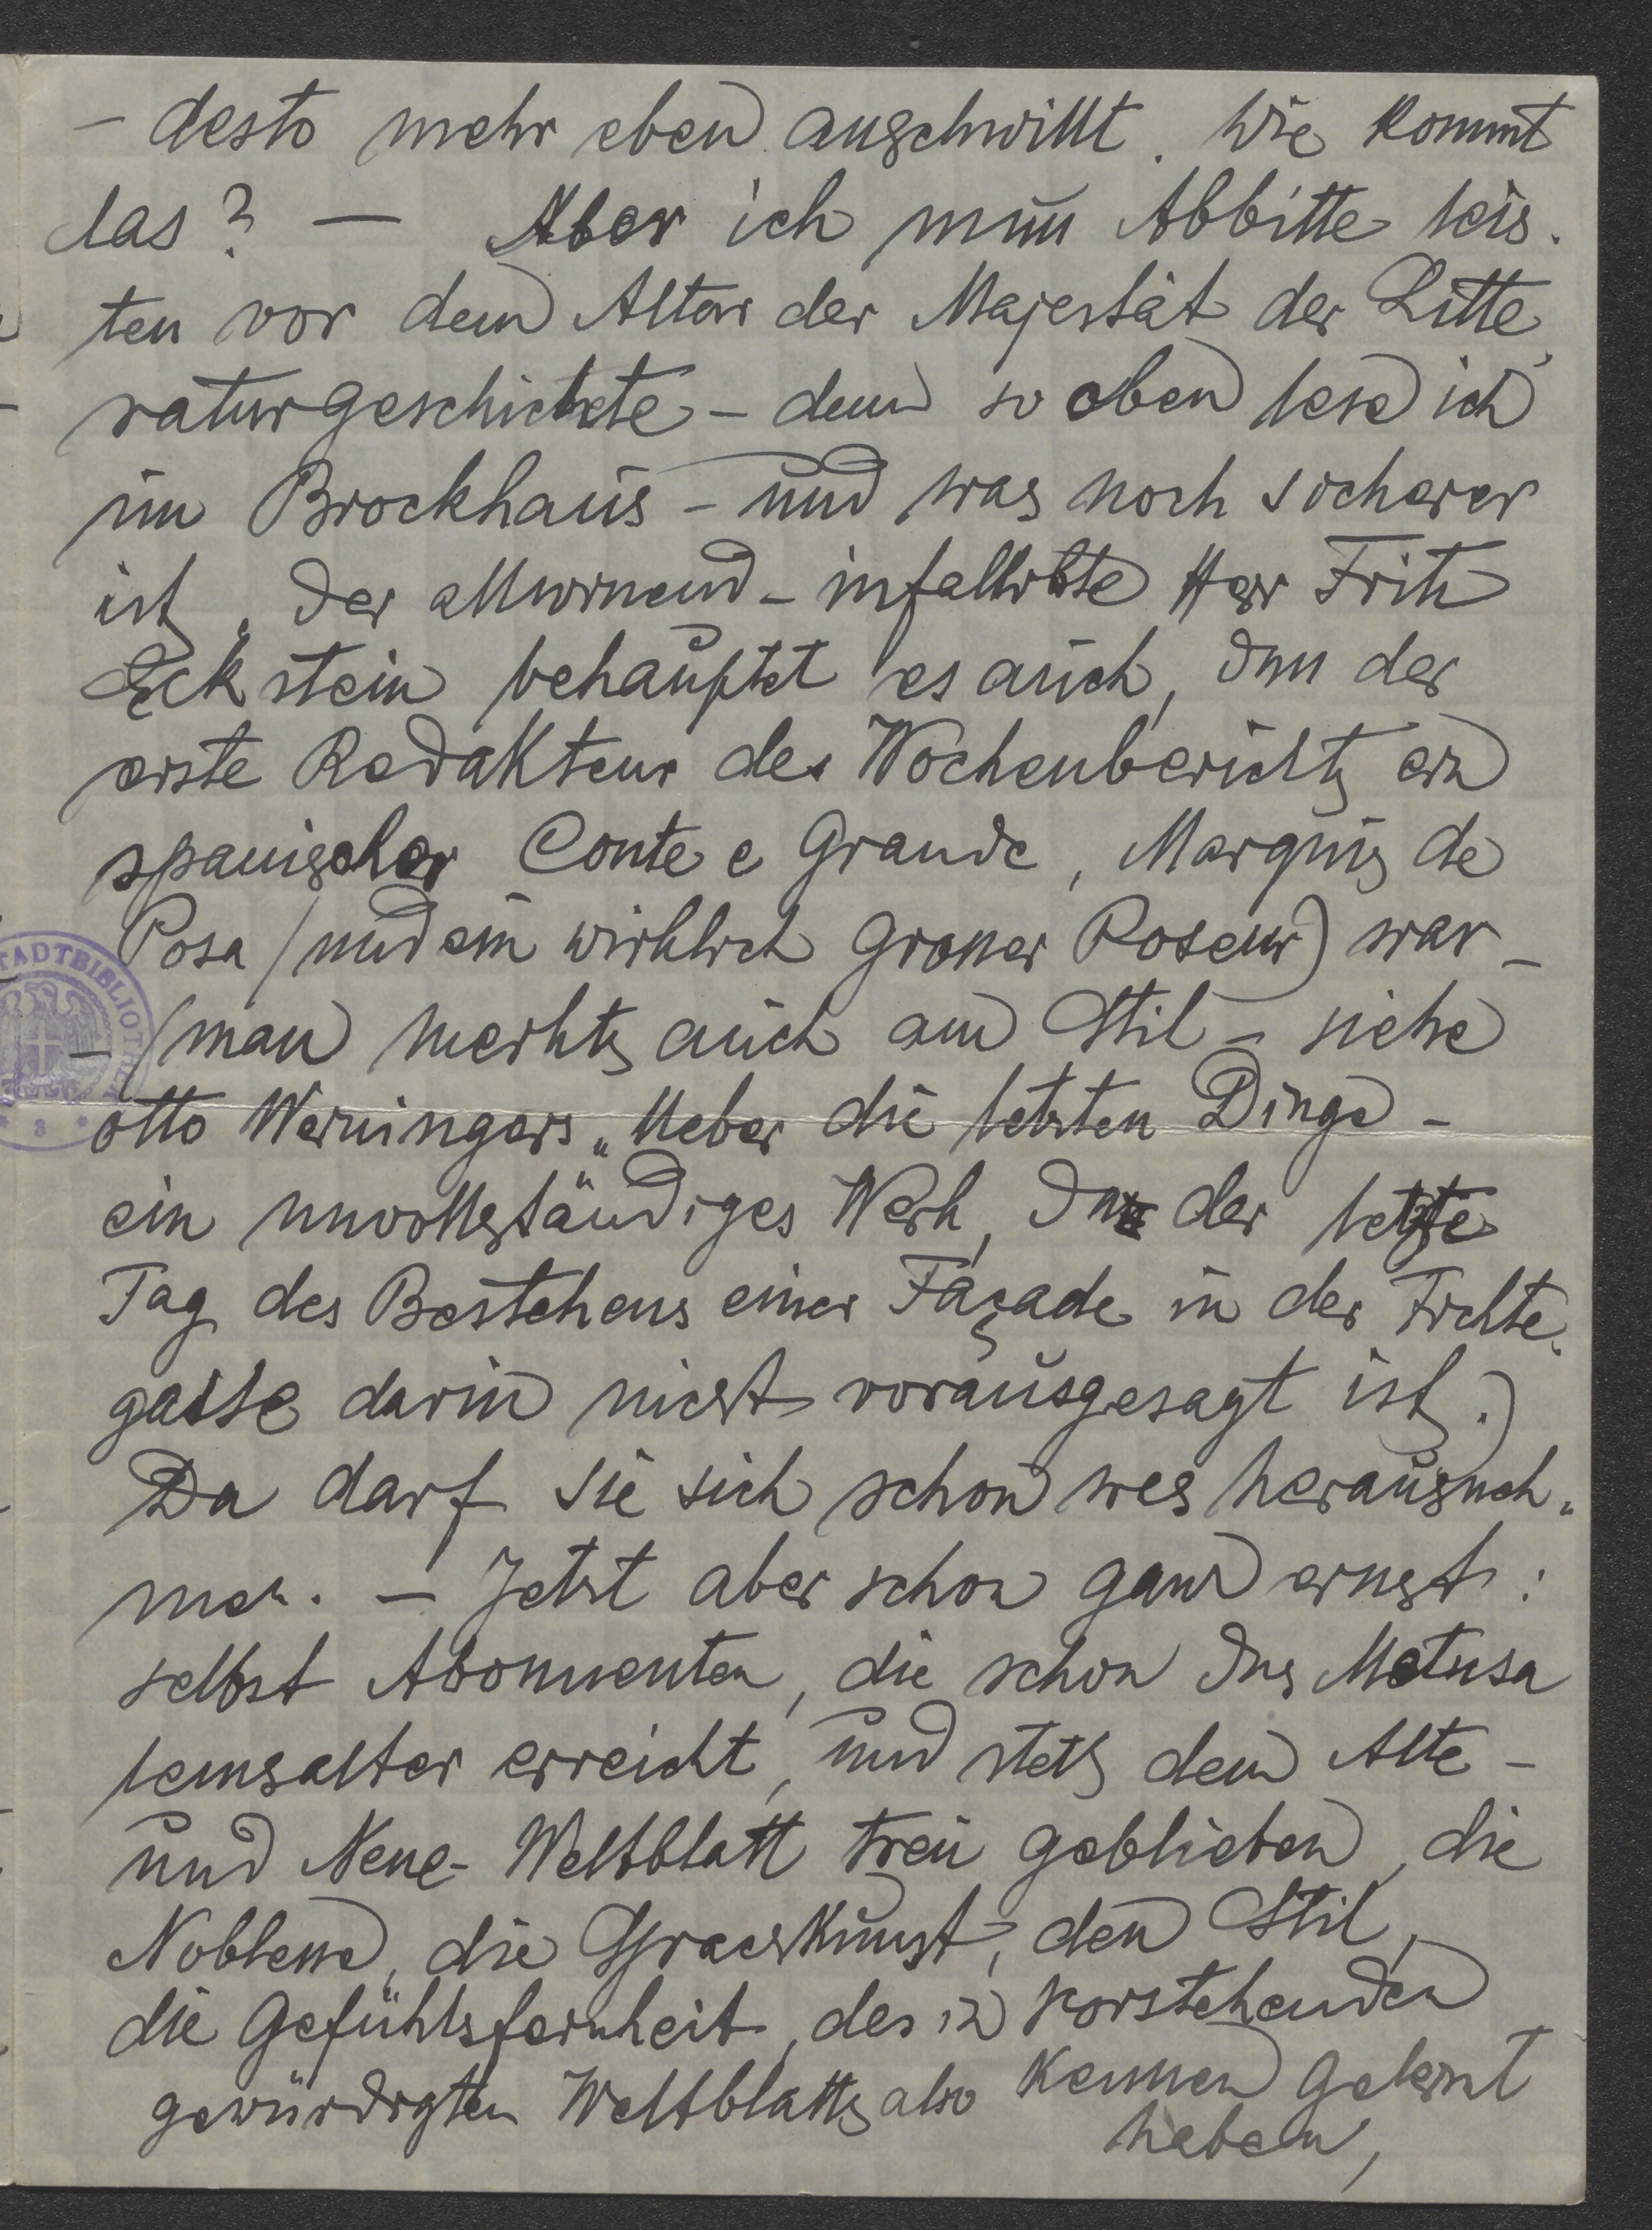 – desto mehr eben anschwillt. Wie kommt
das? – Aber ich muß Abbitte leis-
ten vor dem Altar der Majestät der Litte-
raturgeschichte – denn so eben lese ich
im Brockhaus – und was noch sicherer
ist, der allwissend-infallibste Herr Fritz
Eckstein behauptet es auch, daß der
erste Redakteur des Wochenberichts ein
spanischer Conte e Grande, Marquis de
Posa (und ein wirklich grosser Poseur) war –
– (man merkts auch am Stil – siehe
Otto Weiningers „Ueber die letzten Dinge –
ein unvollständiges Werk, da der letzte
Tag des Bestehens einer Façade in der Fichte-
gasse darin nicht vorausgesagt ist.)
Da darf sie sich schon was herausneh-
men. – Jetzt aber schon ganz ernst:
selbst Abonnenten, die schon das Metusa
lemsalter erreicht, und stets dem Alte-
und Neue-Weltblatt treu geblieben, die
Noblesse, die Sprachkunst, den Stil,
die Gefühlsfernheit, des in vorstehenden
gewürdigten Weltblatts also kennen gelernt
haben,
STADTBIBLIOTHEK